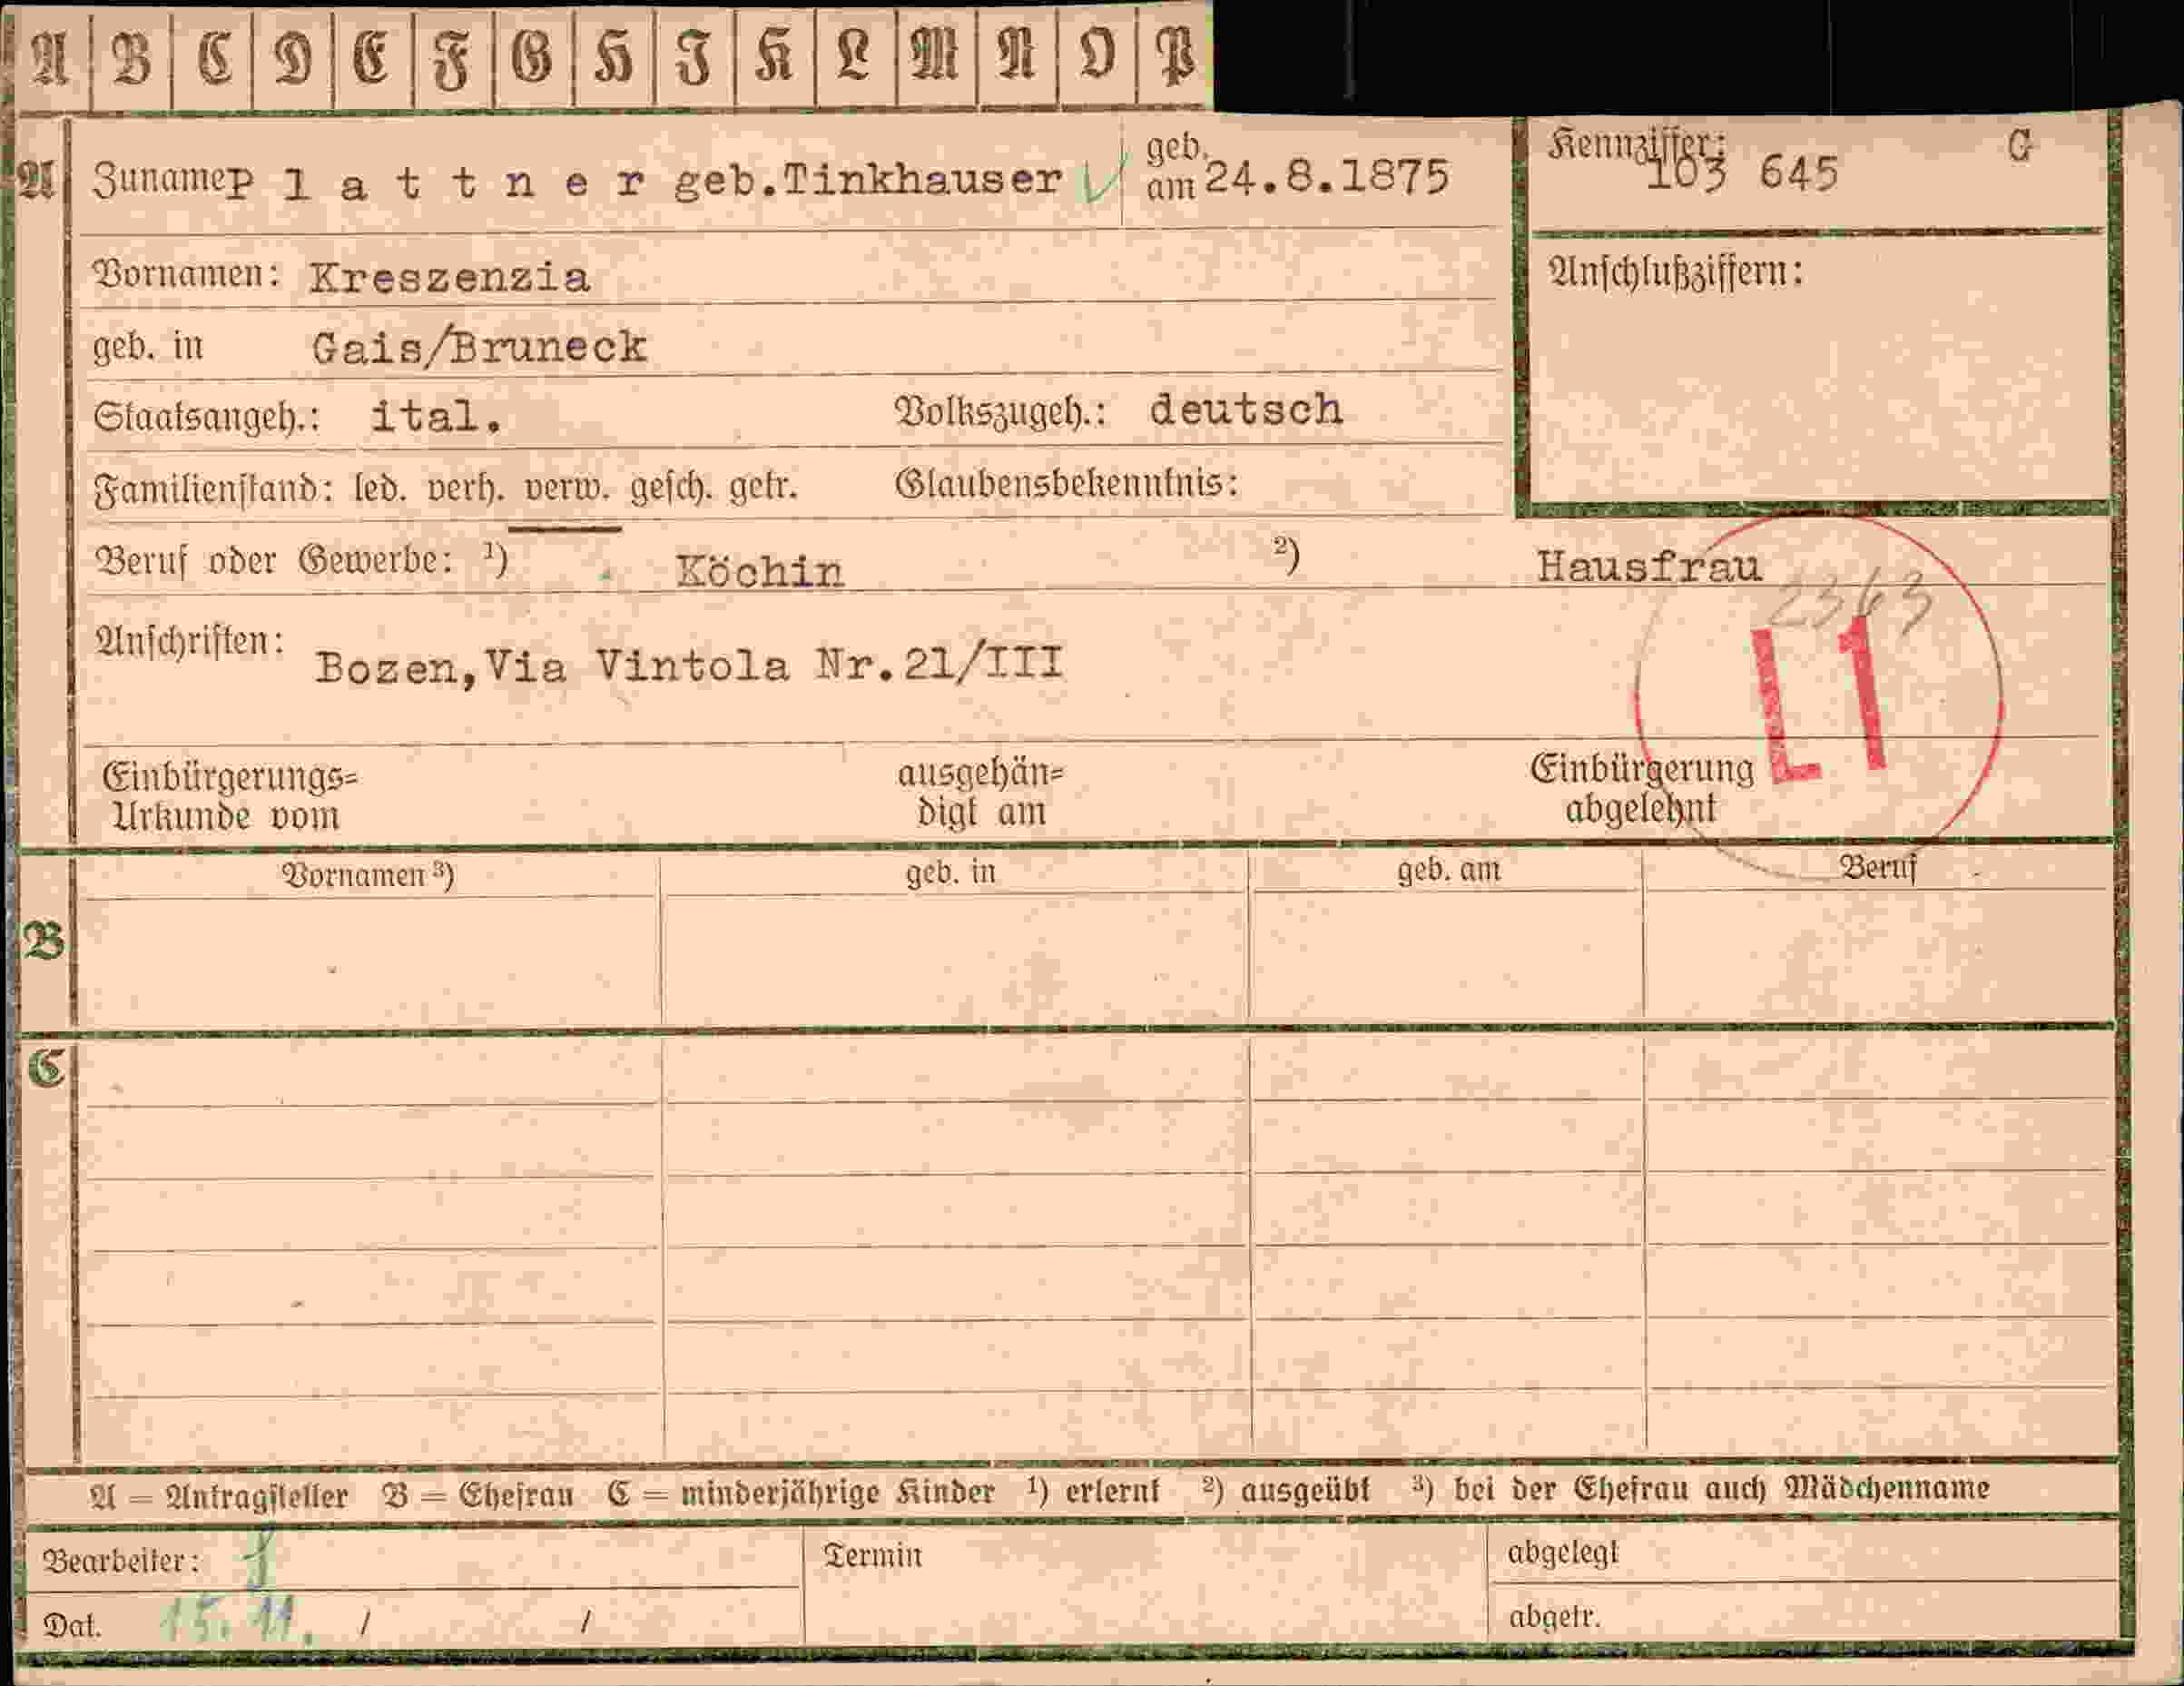 A B C D E F G H J K L M N O P
A Zuname P l a t t n e r geb.Tinkhauser geb. am 24.8.1875 Kennziffer: 103 645 G
Vornamen: Kreszenzia Anschlußziffern:
geb. in Gais/Bruneck
Staatsangeh.: ital. Volkszugeh.: deutsch
Familienstand: led. verh. verw. gesch. getr. Glaubensbekenntnis:
Beruf oder Gewerbe: ¹) Köchin ²) Hausfrau
2363
Anschriften: Bozen,Via Vintola Nr.21/III
L1
Einbürgerungs= ausgehän= Einbürgerung
Urkunde vom digt am abgelehnt
Vornamen ³) geb. in geb. am Beruf
B
C
A = Antragsteller B = Ehefrau C = minderjährige Kinder ¹) erlernt ²) ausgeübt ³) bei der Ehefrau auch Mädchenname
Bearbeiter: Termin abgelegt
Dat. 15.11. / / abgetr.